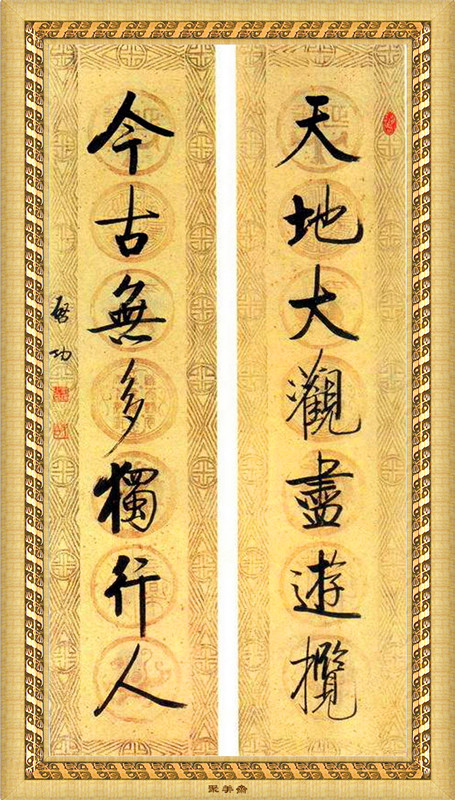 天地大觀盡遊攬
今古無多獨行人
啓功
聚美齋